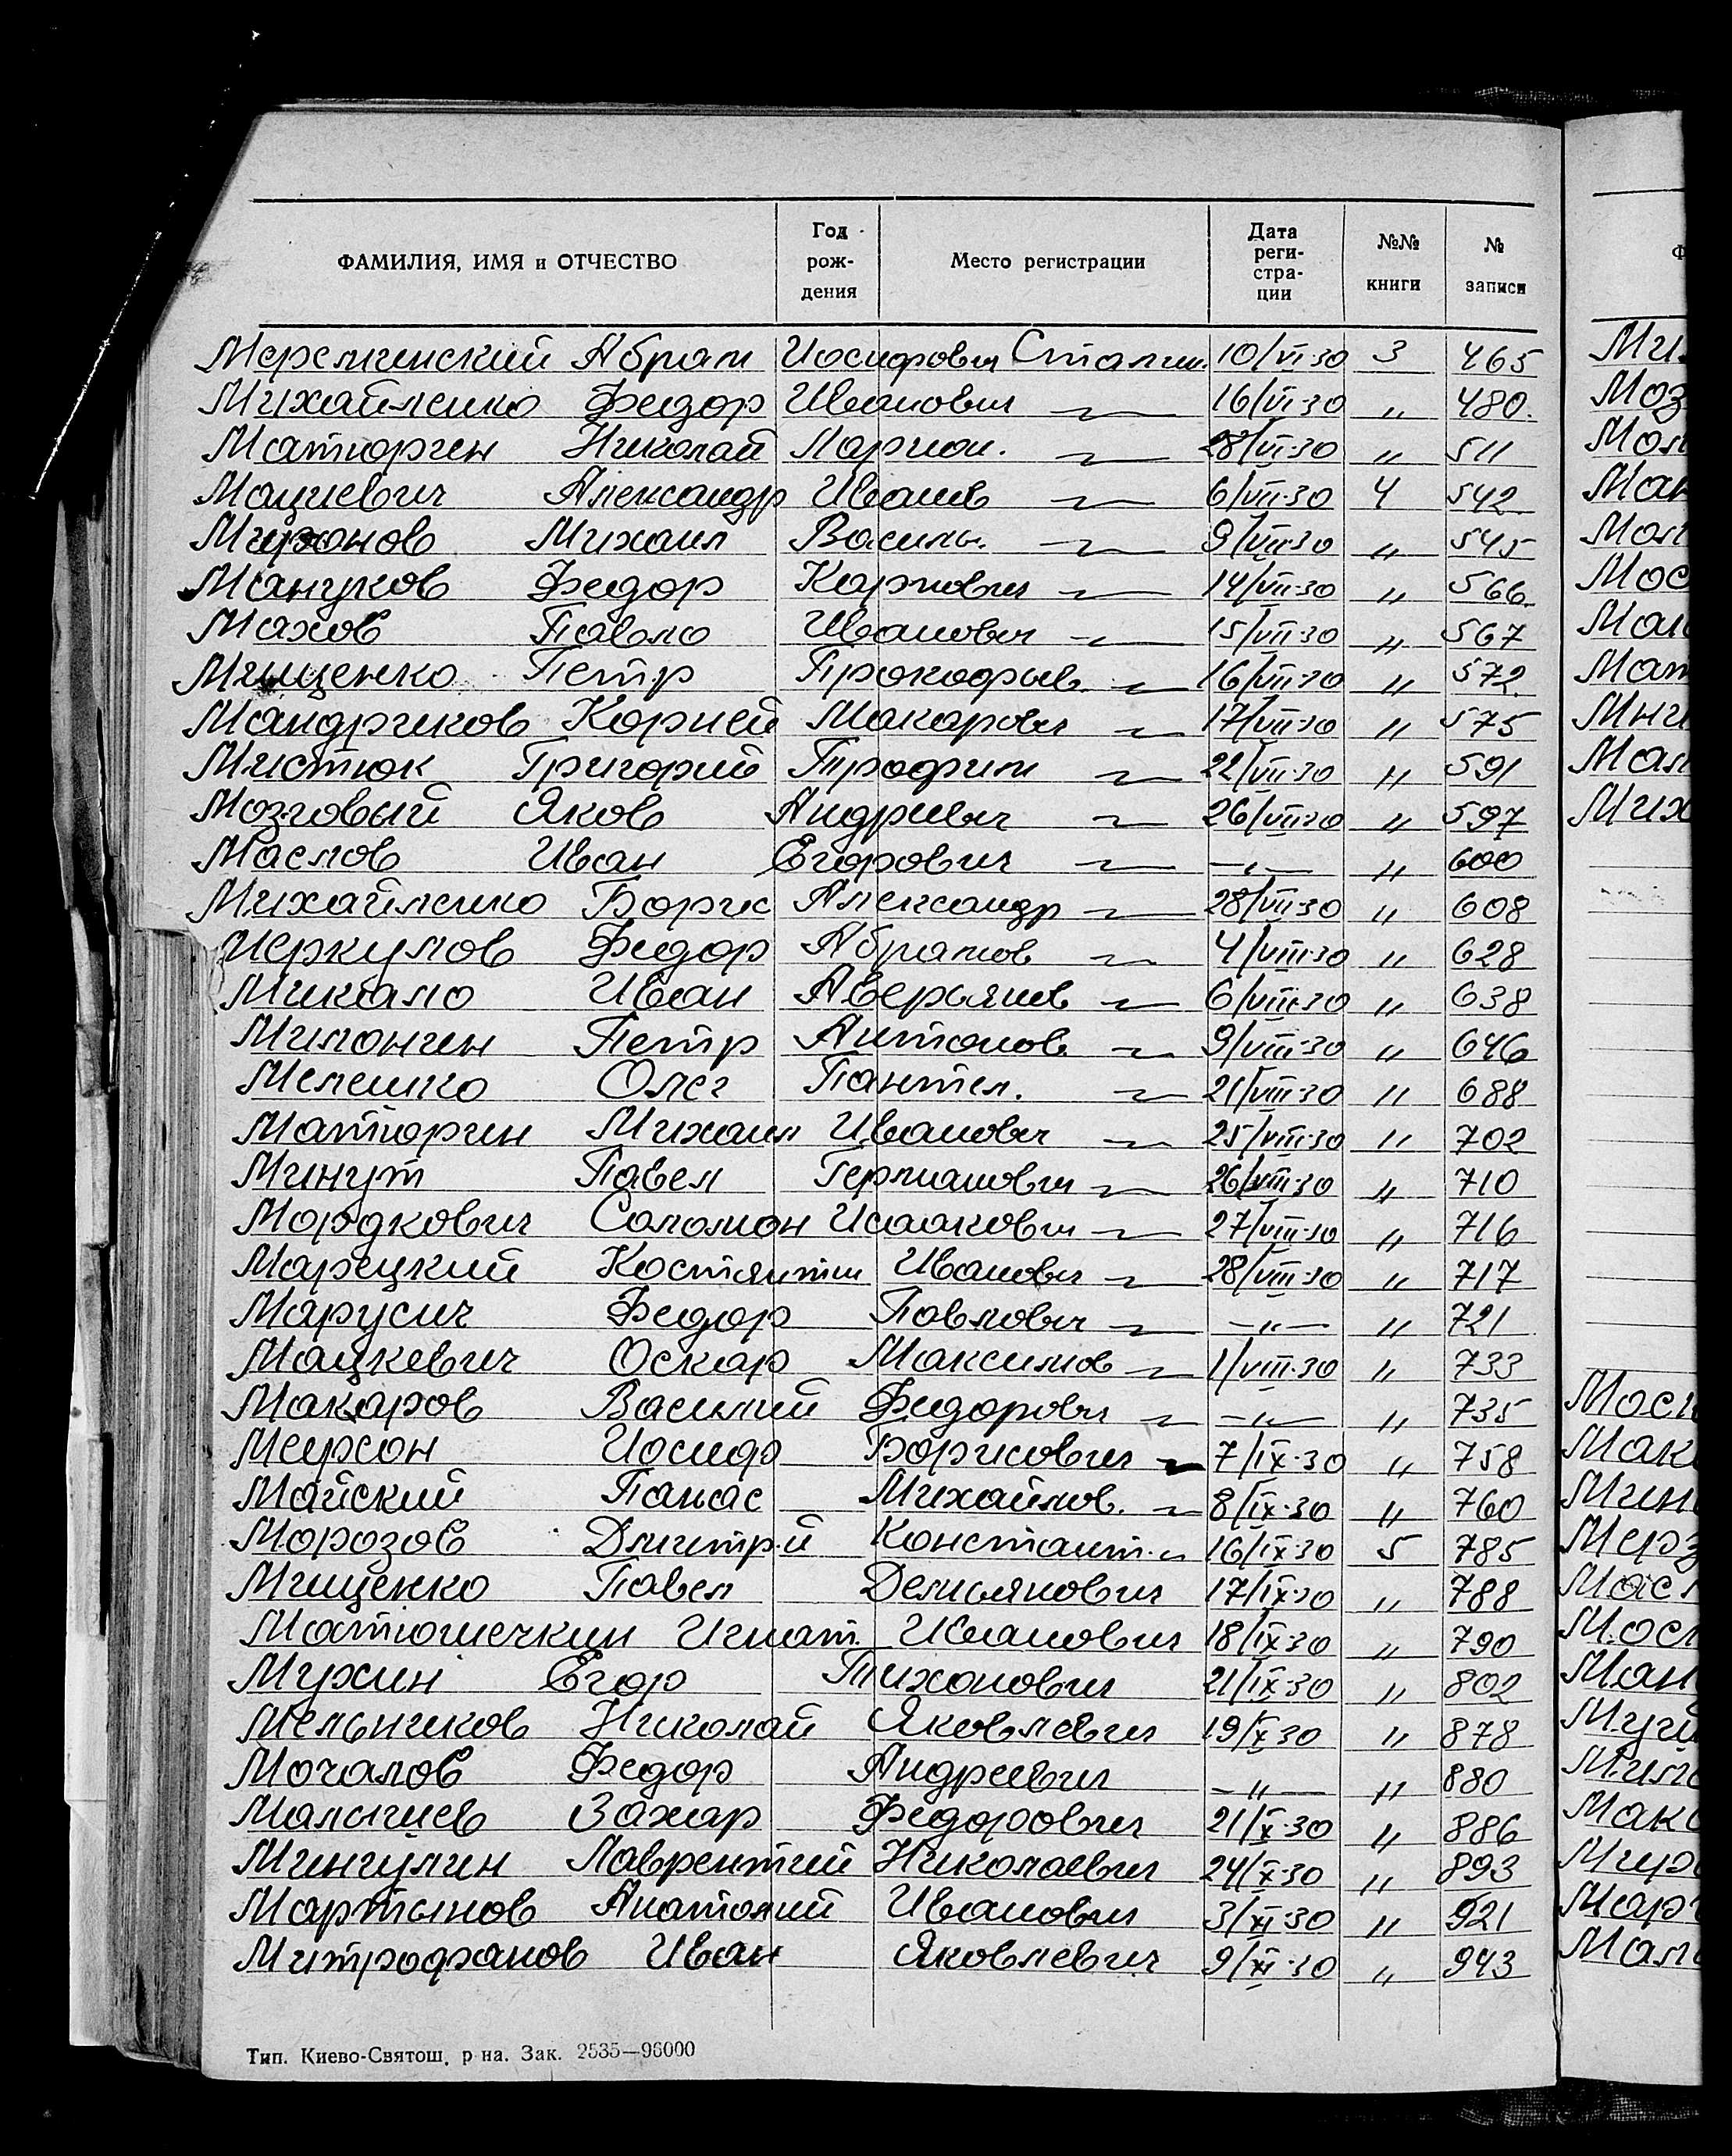 ФАМИЛИЯ, ИМЯ и ОТЧЕСТВО Год рож- дения Место регистрации Дата реги- стра- ции №№ книги № записи
Абрам Иосифович Сталин. 10/VI-30 3 465
Михайленко Федор Иванович 16/VI-30 " 480
Маторген Николай Ларион. 28/VI-30 " 511
Мациевич Александр Иванов 6/VII-30 4 542
Михаил Василь. 9/VII-30 " 545
Мануков Федор Карпович 14/VII-30 " 566
Махов Павло Иванович 15/VII-30 " 567
Мищенко Петр Прокофьев. 16/VII-30 " 572
Мандриков Корней Макарович 17/VII-30 " 575
Мистюк Григорий Трофим 22/VII-30 " 591
Мозговый Яков Андриевич 26/VII-30 " 597
Маслов Иван Егорович -"- " 600
Михайленко Борис Александр 28/VII-30 " 608
Меркулов Федор Абрамов 4/VIII-30 " 628
Микало Иван Аверьянов 6/VIII-30 " 638
Милонген Петр Антонов. 9/VIII-30 " 646
Мелешко Олег Пантел. 21/VIII-30 " 688
Маторин Михаил Иванович 25/VIII-30 " 702
Минут Павел Германович 26/VIII-30 " 710
Мордкович Соломон Исаакович 27/VIII-30 " 716
Марецкий Костянтин Иванович 28/VIII-30 " 717
Марусич Федор Павлович -"- " 721
Мацкевич Оскар Максимов 1/VIII-30 " 733
Макаров Василий Федорович -"- " 735
Меерсон Иосиф Борисович 7/IX-30 " 758
Майский Панас Михайлов. 8/IX-30 " 760
Морозов Дмитрий Константин. " 16/IX-30 5 785
Мищенко Павел Демьянович 17/IX-30 " 788
Матюшечкин Игнат Иванович 18/IX-30 " 790
Мухин Егор Тихонович 21/IX-30 " 802
Мельников Николай Яковлевич 19/X-30 " 878
Мочалов Федор Андреевич -"- " 880
Малышев Захар Федорович 21/X-30 " 886
Мингулин Лаврентий Николаевич 24/X-30 " 893
Мартынов Анатолий Иванович 3/XI-30 " 921
Митрофанов Иван Яковлевич 9/XI-30 " 943
Тип. Киево-Святош. р-на. Зак. 2535—96000